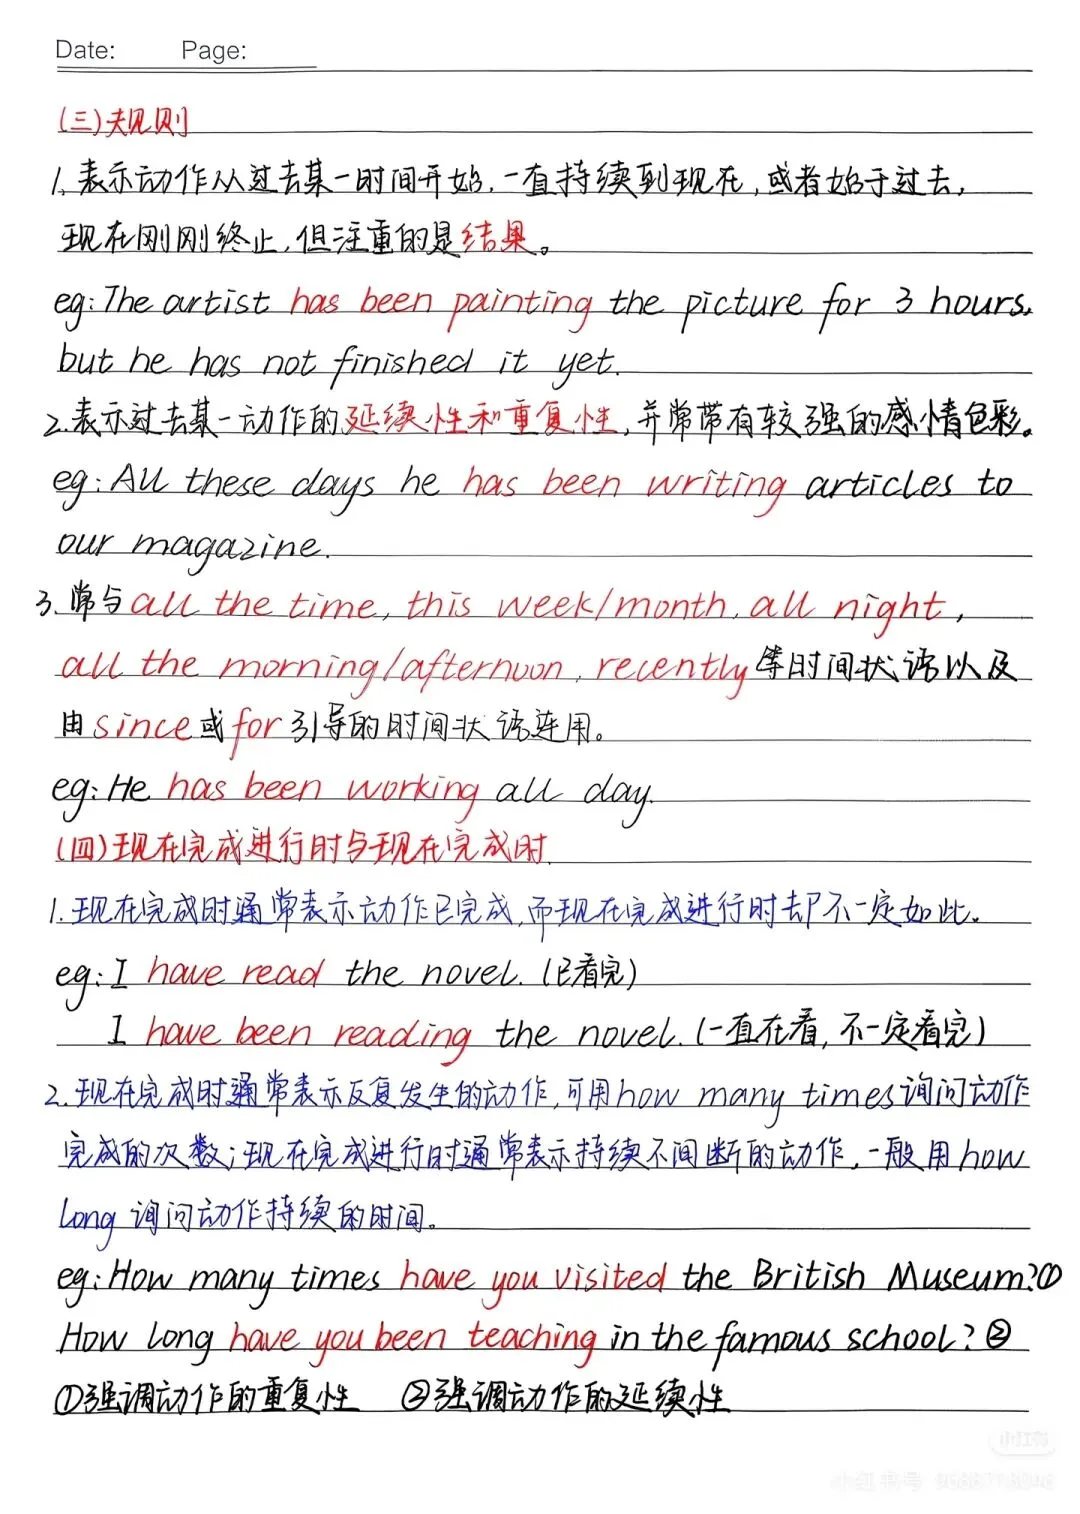 Date: Page:
(三)规则
1.表示动作从过去某一时间开始,一直持续到现在,或者始于过去,
现在刚刚终止,但注重的是结果。
eg:The artist has been painting the picture for 3 hours,
but he has not finished it yet.
2.表示过去某一动作的延续性和重复性,并常带有较强的感情色彩。
eg:All these days he has been writing articles to
our magazine.
3.常与all the time, this week/month, all night,
all the morning/afternoon, recently等时间状语以及
由since或for引导的时间状语连用。
eg:He has been working all day.
(四)现在完成进行时与现在完成时
1.现在完成时通常表示动作已完成,而现在完成进行时却不一定如此。
eg:I have read the novel.(已看完)
I have been reading the novel.(一直在看,不一定看完)
2.现在完成时通常表示反复发生的动作,可用how many times询问动作
完成的次数;现在完成进行时通常表示持续不间断的动作,一般用how
long询问动作持续的时间。
eg:How many times have you visited the British Museum?①
How long have you been teaching in the famous school?②
①强调动作的重复性 ②强调动作的延续性
小红书
小红书号